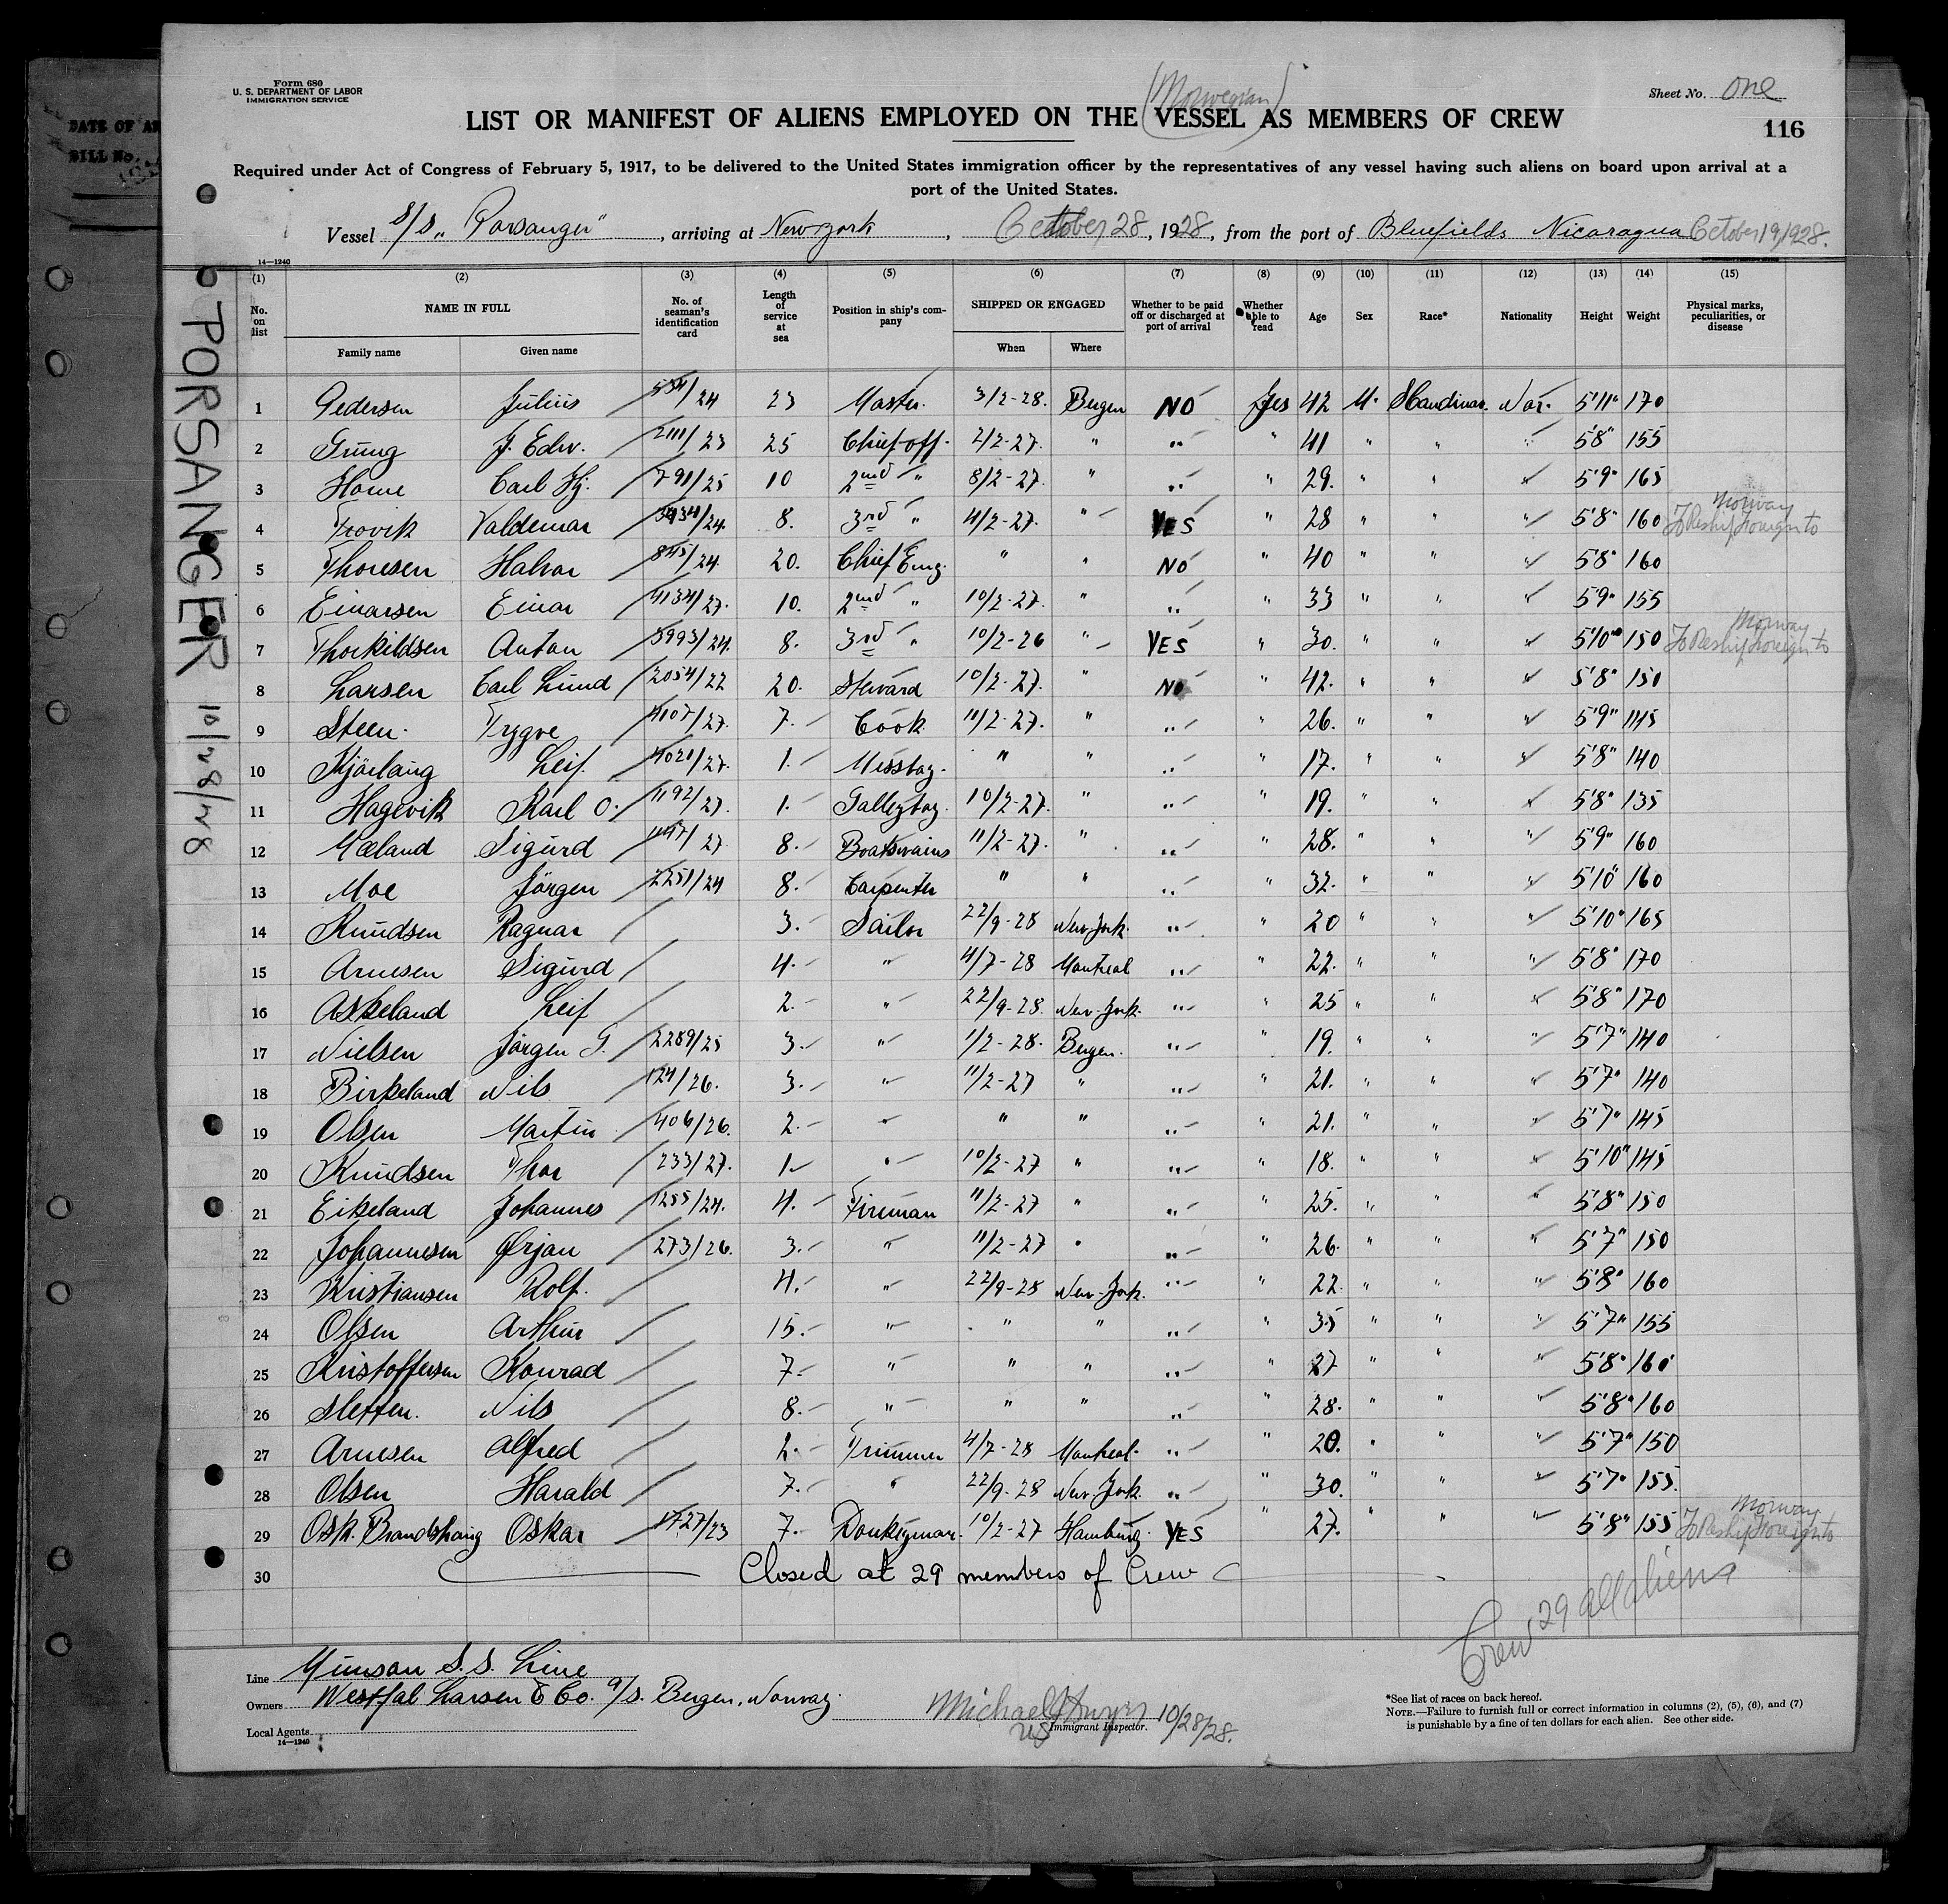 DATE OF AR
BILL No.
Form 680
U. S. DEPARTMENT OF LABOR
IMMIGRATION SERVICE
Sheet No. one
(Norwegian)
LIST OR MANIFEST OF ALIENS EMPLOYED ON THE VESSEL AS MEMBERS OF CREW
116
Required under Act of Congress of February 5, 1917, to be delivered to the United States immigration officer by the representatives of any vessel having such aliens on board upon arrival at a
port of the United States.
Vessel S/S „Porsanger", arriving at New York, October 28, 1928, from the port of Bluefields Nicaragua October 19, 1928.
14—1240
PORSANGER 10/28/28
(1) (2) (3) (4) (5) (6) (7) (8) (9) (10) (11) (12) (13) (14) (15)
No. on list
NAME IN FULL
Family name
Given name
No. of seaman's identification card
Length of service at sea
Position in ship's company
SHIPPED OR ENGAGED
When
Where
Whether to be paid off or discharged at port of arrival
Whether able to read
Age
Sex
Race*
Nationality
Height
Weight
Physical marks, peculiarities, or disease
1 Pedersen Julius 534/24 23 Master. 3/2-28. Bergen NO Yes 42 M. Skandinav. Nor. 5'11" 170
2 J. Edw. 2111/23 25 Chief off. 2/2-27. " " " 41 " " " 5'8" 155
3 Carl Hj. 791/25 10 2nd " 8/2-27. " " " 29. " " " 5'9" 165
4 Trovik Valdemar 24 8. 3rd " 4/2-27. " YES " 28 " " " 5'8" 160 To Reship foreign to Norway
5 Thoresen Halvor 845/24 20. Chief Eng. " " NO " 40 " " " 5'8" 160
6 Einarsen Einar 4134/27. 10. 2nd " 10/2-27. " " " 33 " " " 5'9" 155
7 Thorkildsen Anton 3993/24. 8. 3rd " 10/2-26 " YES " 30. " " " 5'10" 150 To Reship foreign to Norway
8 Larsen Carl Lund 2054/22 20. Steward 10/2-27. " NO " 42. " " " 5'8" 150
9 Steen. Trygve 4107/27. 7. Cook 11/2-27. " " " 26. " " " 5'9" 145
10 Kjærlang Leif. 4021/27. 1. Messboy. " " " " 17. " " " 5'8" 140
11 Hagevik Karl O. 1192/27. 1. Galleyboy. 10/2-27. " " " 19. " " " 5'8" 135
12 Mæland Sigurd 27 8. Boatswains 11/2-27. " " " 28. " " " 5'9" 160
13 Moe Jörgen 2251/24 8. Carpenter " " " " 32. " " " 5'10" 160
14 Knudsen Ragnar 3. Sailor 22/9-28 New-York. " " 20 " " " 5'10" 165
15 Arnesen Sigurd 4. " 4/7-28 Montreal " " 22. " " " 5'8" 170
16 Askeland Leif 2. " 22/9-28. New-York. " " 25 " " " 5'8" 170
17 Nielsen Jörgen G. 2289/25 3. " 1/2-28. Bergen. " " 19. " " " 5'7" 140
18 Birkeland Nils 124/26. 3. " 11/2-27 " " " 21. " " " 5'7" 140
19 Olsen Martin 406/26. 2. " " " " " 21. " " " 5'7" 145
20 Knudsen Thor 233/27. 1 " 10/2-27 " " " 18. " " " 5'10" 145
21 Eikeland Johannes 1255/24. 4. Fireman 11/2-27 " " " 25. " " " 5'8" 150
22 Johannesen Ørjan 273/26. 3. " 11/2-27 " " " 26. " " " 5'7" 150
23 Kristiansen Rolf. 4. " 22/9-28 New-York. " " 22. " " " 5'8" 160
24 Olsen Arthur 15. " " " " " 35 " " " 5'7" 155
25 Kristoffersen Konrad 7. " " " " " 27 " " " 5'8" 160
26 Sletten. Nils 8. " " " " " 28. " " " 5'8" 160
27 Arnesen Alfred 2. Trimmer 4/7-28 Montreal. " " 20. " " " 5'7" 150
28 Olsen Harald 7. " 22/9-28 New-York. " " 30. " " " 5'7" 155.
29 Oskar 1727/23 7. Donkeyman. 10/2-27 Hamburg. YES " 27. " " " 5'8" 155 To Reship foreign to Norway
30 Closed at 29 members of Crew
Crew 29 all aliens
Line Munson S. S. Line
Owners Westfal Larsen & Co. A/S. Bergen, Norway.
Local Agents
14—1240
Michael J Dwyer 10/28/28.
US Immigrant Inspector.
*See list of races on back hereof.
NOTE.—Failure to furnish full or correct information in columns (2), (5), (6), and (7)
is punishable by a fine of ten dollars for each alien. See other side.